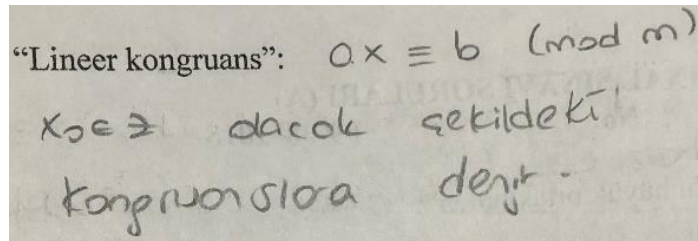 “Lineer kongruans”: ax ≡ b (mod m)
x₀ ∈ Z olacak şekildeki
kongruanslara denir.